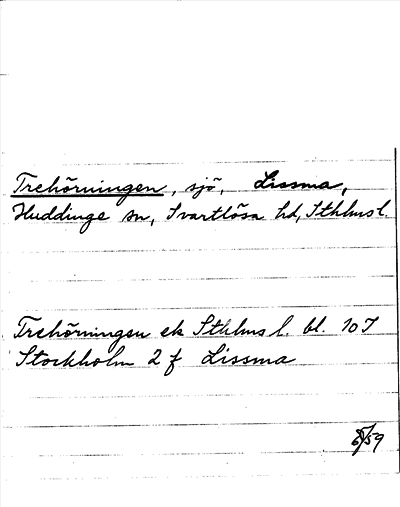 Trehörningen, sjö, Lissma,
Huddinge sn, Svartlösa hd, Sthlms l.
Trehörningen ek Sthlms l. bl. 10J
Stockholm 2 f Lissma